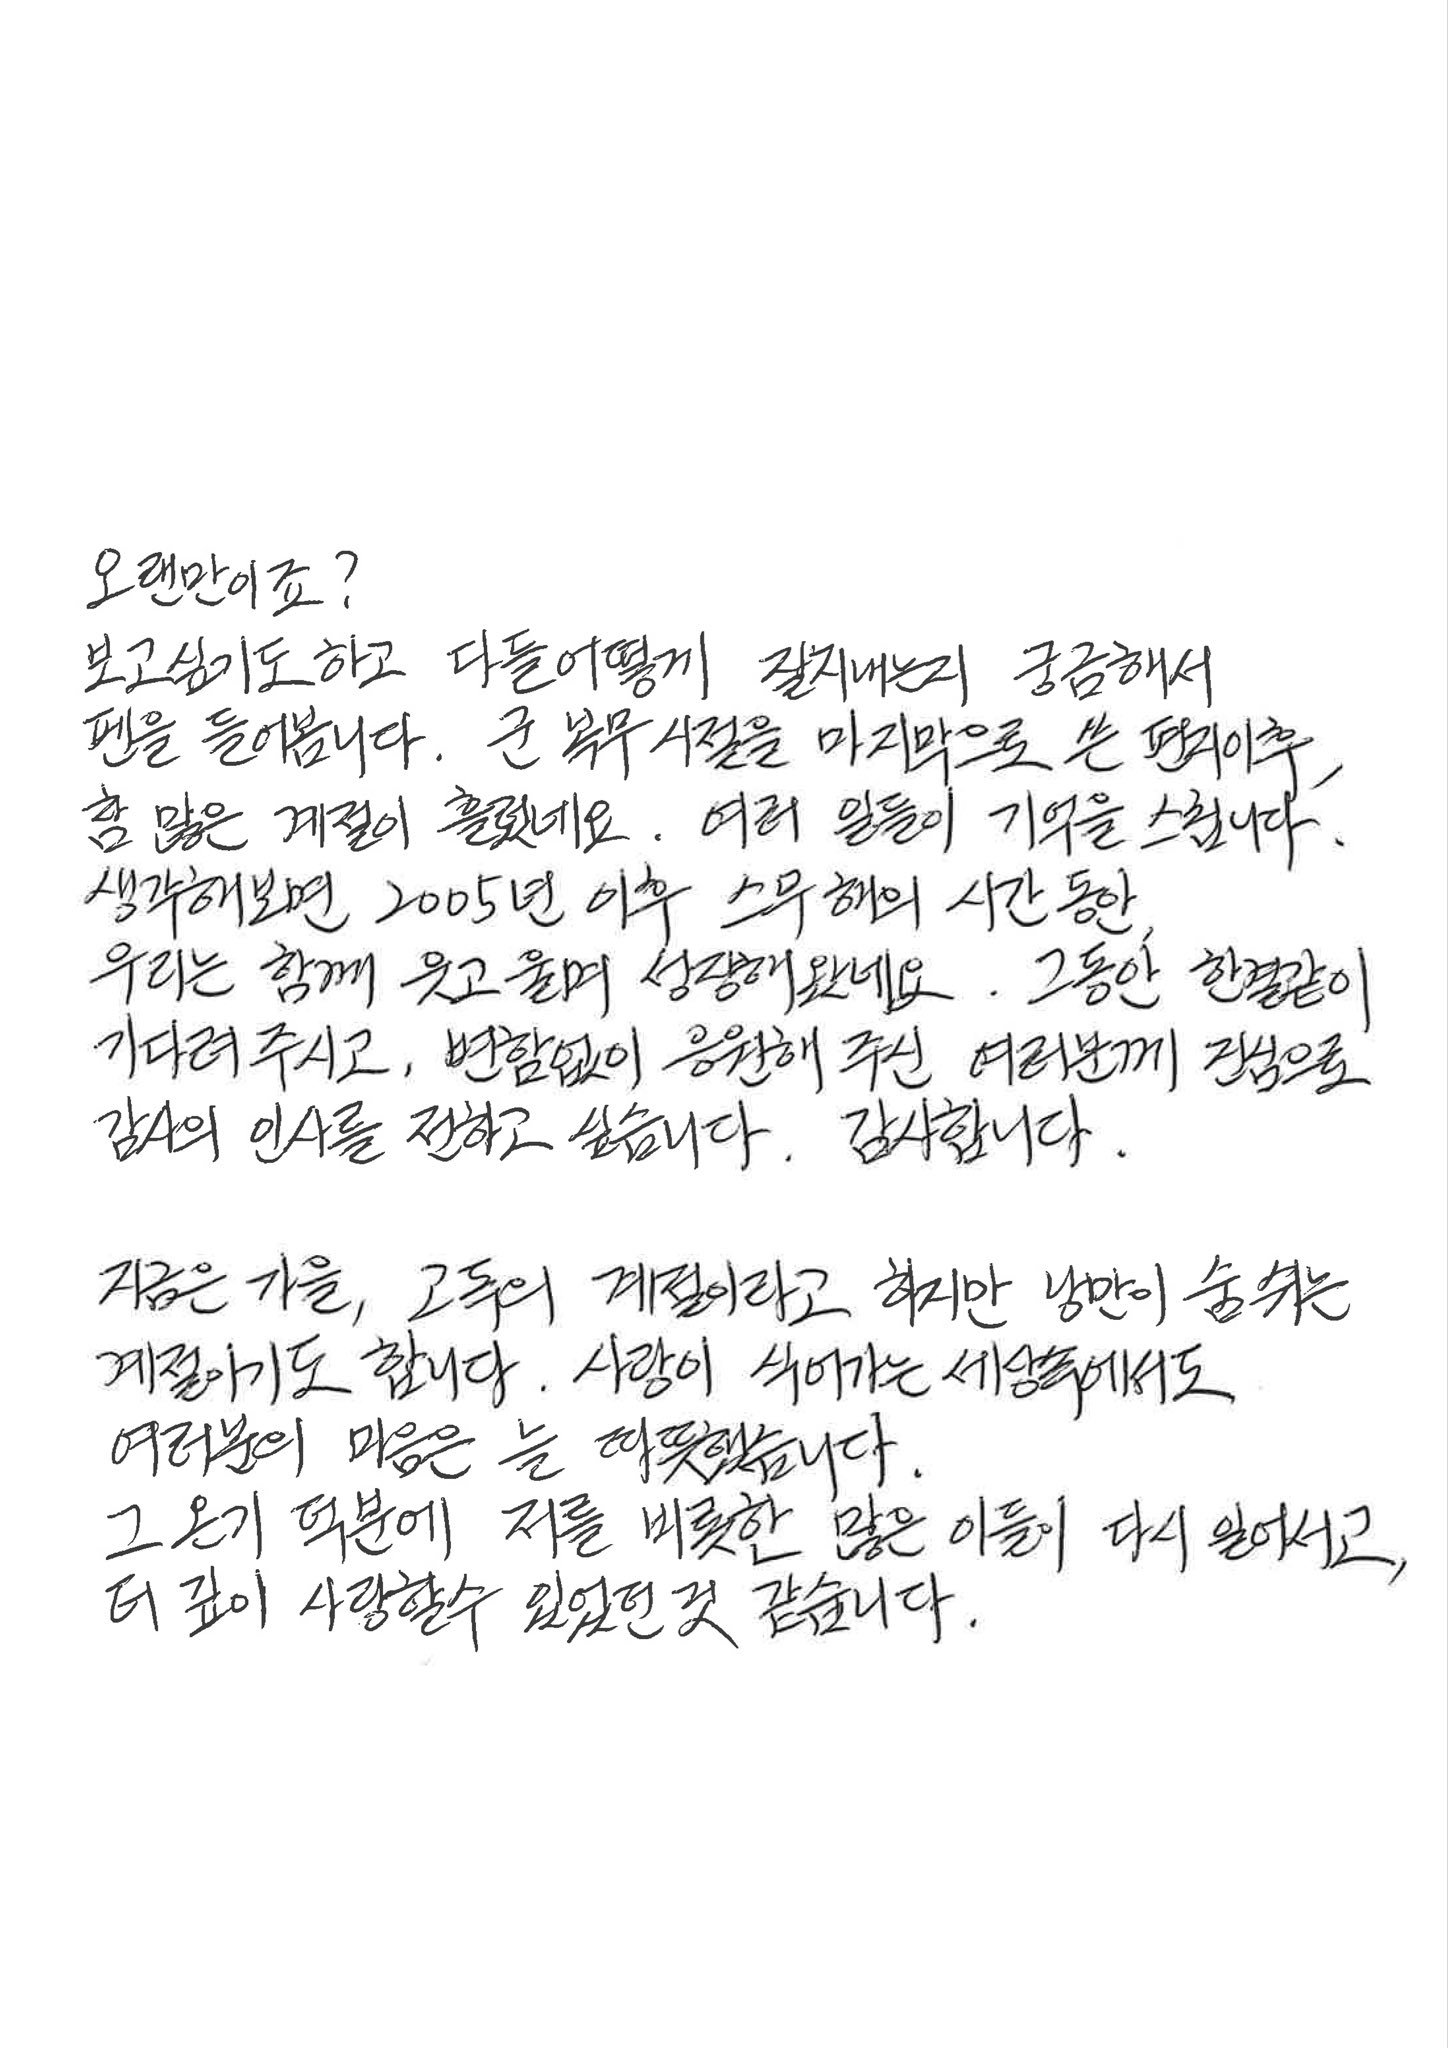 오랜만이죠?
보고싶기도하고 다들어떻게 잘지내는지 궁금해서
펜을 들어봅니다. 군 복무시절을 마지막으로 쓴 편지이후,
참 많은 계절이 흘렀네요. 여러 일들이 기억을 스칩니다.
생각해보면 2005년 이후 스무해의 시간동안,
우리는 함께 웃고 울며 성장해왔네요. 그동안 한결같이
기다려주시고, 변함없이 응원해 주신 여러분께 진심으로
감사의 인사를 전하고 싶습니다. 감사합니다.
지금은 가을, 고독의 계절이라고 하지만 낭만이 숨쉬는
계절이기도 합니다. 사랑이 식어가는 세상속에서도
여러분의 마음은 늘 따뜻했습니다.
그 온기 덕분에 저를 비롯한 많은 이들이 다시 일어서고,
더 깊이 사랑할수 있었던 것 같습니다.